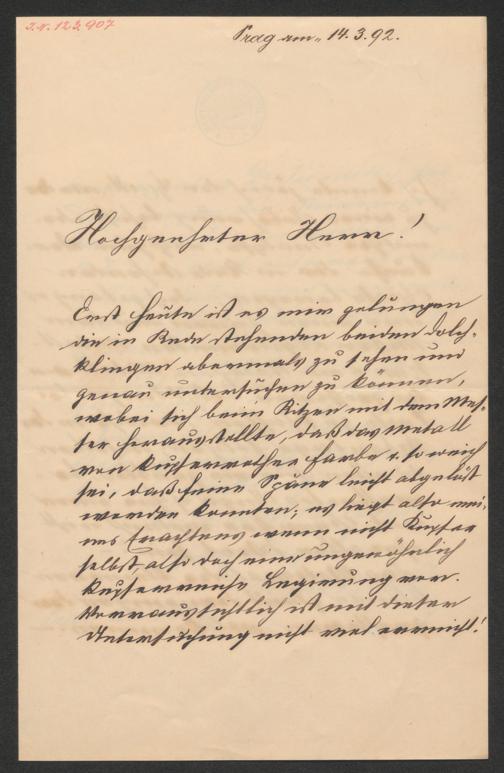 I.N. 123.907
Prag am 14.3.92.
Hochgeehrter Herr!
Erst heute ist es mir gelungen
die in Rede stehenden beiden Dolch-
klingen abermals zu sehen und
genau untersuchen zu können,
wobei sich beim Ritzen mit dem Mes-
ser herausstellte, daß das Metall
von kupferrother Farbe u. so weich
sei, daß feine Späne leicht abgelöst
werden konnten; es liegt also mei-
nes Erachtens wenn nicht Kupfer
selbst, also doch eine ungewöhnlich
kupferreiche Legirung vor.
Vorraussichtlich ist mit dieser
Untersuchung nicht viel erreicht!